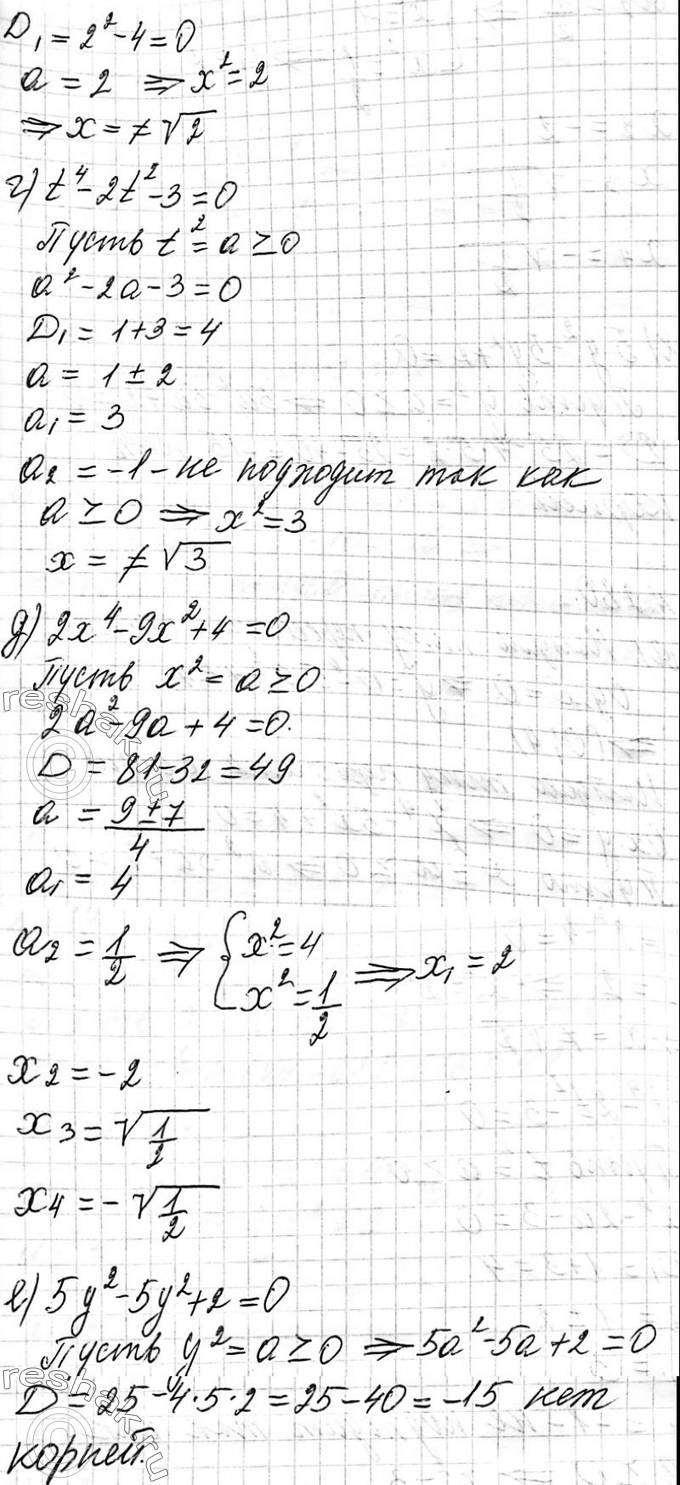 D₁ = 2² - 4 = 0
a = 2 ⇒ x² = 2
⇒ x = ≠ √2
г) t⁴ - 2t² - 3 = 0
Пусть t² = a ≥ 0
a² - 2a - 3 = 0
D₁ = 1 + 3 = 4
a = 1 ± 2
a₁ = 3
a₂ = -1 - не подходит так как
a ≥ 0 ⇒ x² = 3
x = ≠ √3
д) 2x⁴ - 9x² + 4 = 0
Пусть x² = a ≥ 0
2a² - 9a + 4 = 0.
D = 81 - 32 = 49
a = (9 ± 7)/4
a₁ = 4
a₂ = 1/2 ⇒ { x² = 4 x² = 1/2 ⇒ x₁ = 2
x₂ = -2
x₃ = √(1/2)
x₄ = -√(1/2)
е) 5y² - 5y² + 2 = 0
Пусть y² = a ≥ 0 ⇒ 5a² - 5a + 2 = 0
D = 25 - 4·5·2 = 25 - 40 = -15 нет
корней.
reshak.ru
reshak.ru